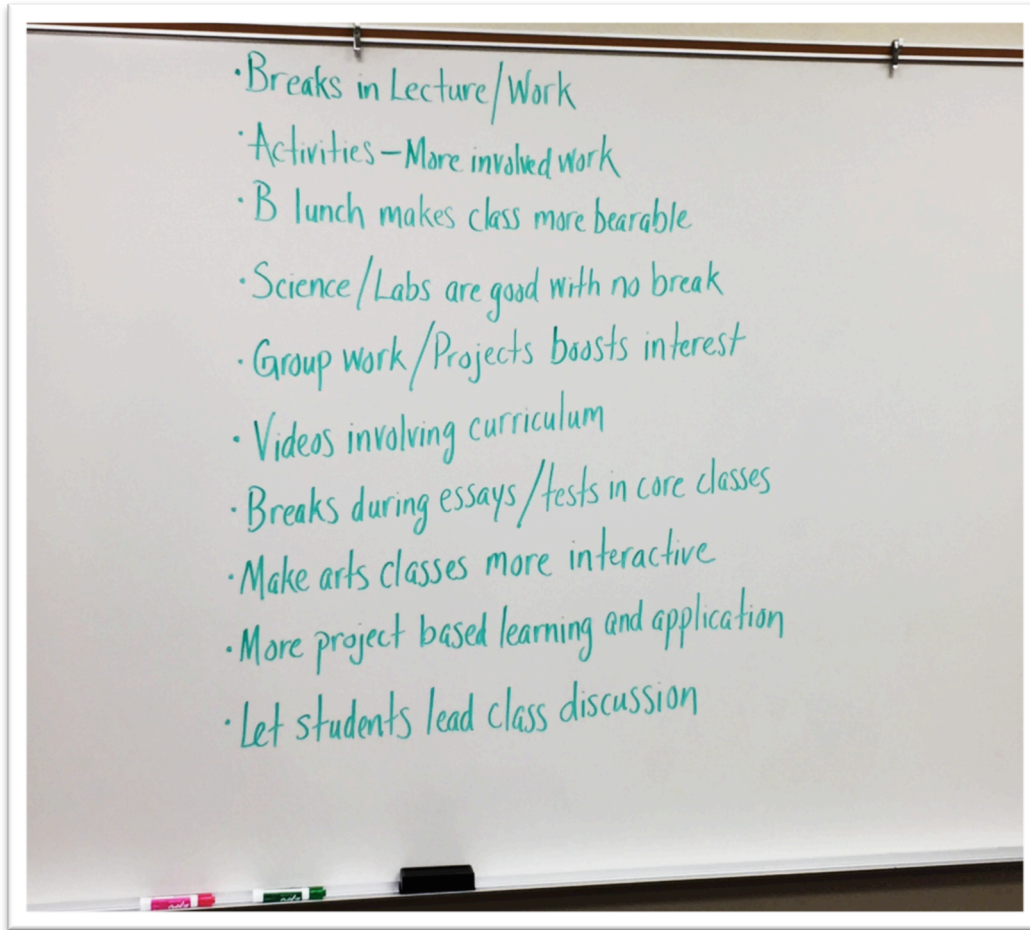 ·Breaks in Lecture/Work
·Activities–More involved work
·B lunch makes class more bearable
·Science/Labs are good with no break
·Group work/Projects boosts interest
·Videos involving curriculum
·Breaks during essays/tests in core classes
·Make arts classes more interactive
·More project based learning and application
·Let students lead class discussion